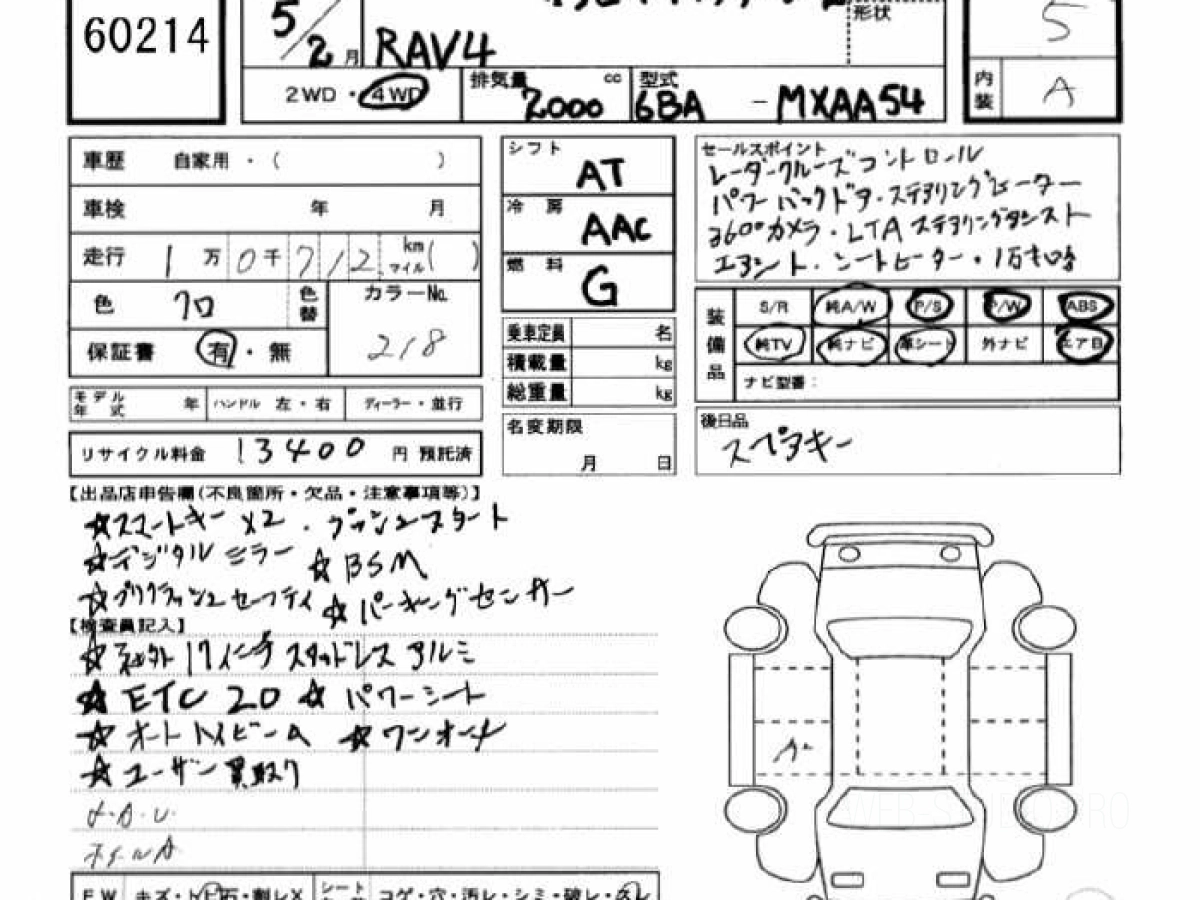 60214
5/2月
RAV4
形状
5
2WD・4WD
排気量 2000 cc
型式 6BA - MXAA54
内装 A
車歴 自家用・( )
車検 年 月
走行 1万0千712 km マイル( )
色 クロ 色替
カラーNo. 218
保証書 有・無
モデル年式 年 ハンドル 左・右 ディーラー・並行
リサイクル料金 13400 円 預託済
シフト AT
冷房 AAC
燃料 G
乗車定員 名
積載量 kg
総重量 kg
名変期限 月 日
セールスポイント
レーダークルーズコントロール
パワーバックドア・ステアリングヒーター
360°カメラ・LTA ステアリングアシスト
エアシート・シートヒーター・1万キロ台
装備品
S/R 純A/W P/S P/W ABS
純TV 純ナビ 革シート 外ナビ エアB
ナビ型番:
後日品
スペアキー
【出品店申告欄(不良箇所・欠品・注意事項等)】
☆スマートキー×2・プッシュスタート
☆デジタルミラー ☆BSM
☆プリクラッシュセーフティ ☆パーキングセンサー
【検査員記入】
☆社外17インチスタッドレスアルミ
☆ETC 2.0 ☆パワーシート
☆オートハイビーム ☆ワンオーナー
☆ユーザー買取り
ホイールA
A2
FW キズ・トビ石・割レX
シート コゲ・穴・汚レ・シミ・破レ・スレ